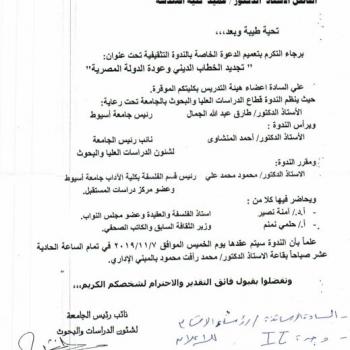 الفاضل الأستاذ الدكتور/ عميد كلية الهندسة
تحية طيبة وبعد،،،
برجاء التكرم بتعميم الدعوة الخاصة بالندوة التثقيفية تحت عنوان:
" تجديد الخطاب الديني وعودة الدولة المصرية"
علي السادة اعضاء هيئة التدريس بكليتكم الموقرة.
حيث ينظم الندوة قطاع الدراسات العليا والبحوث بالجامعة تحت رعاية:
الأستاذ الدكتور/ طارق عبد الله الجمال رئيس جامعة أسيوط
ويرأس الندوة:
الأستاذ الدكتور/ أحمد المنشاوى نائب رئيس الجامعة
لشئون الدراسات العليا والبحوث
ومقرر الندوة:
الأستاذ الدكتور/ محمود محمد علي رئيس قسم الفلسفة بكلية الأداب جامعة أسيوط
وعضو مركز دراسات المستقبل.
ويحاضر فيها كلا من:
- أ.د/ آمنة نصير استاذ الفلسفة والعقيدة وعضو مجلس النواب.
- أ/ حلمي نمنم وزير الثقافة السابق والكاتب الصحفي.
علماً بأن الندوة سيتم عقدها يوم الخميس الموافق ٢٠١٩/١١/٧ في تمام الساعة الحادية
عشر صباحاً بقاعة الأستاذ الدكتور/ محمد رأفت محمود بالمبني الإداري.
وتفضلوا بقبول فائق التقدير والاحترام لشخصكم الكريم،،،
نائب رئيس الجامعة
لشئون الدراسات والبحوث
السادة الأساتذة / رؤساء الأقسام
وحدة IT للإعلام